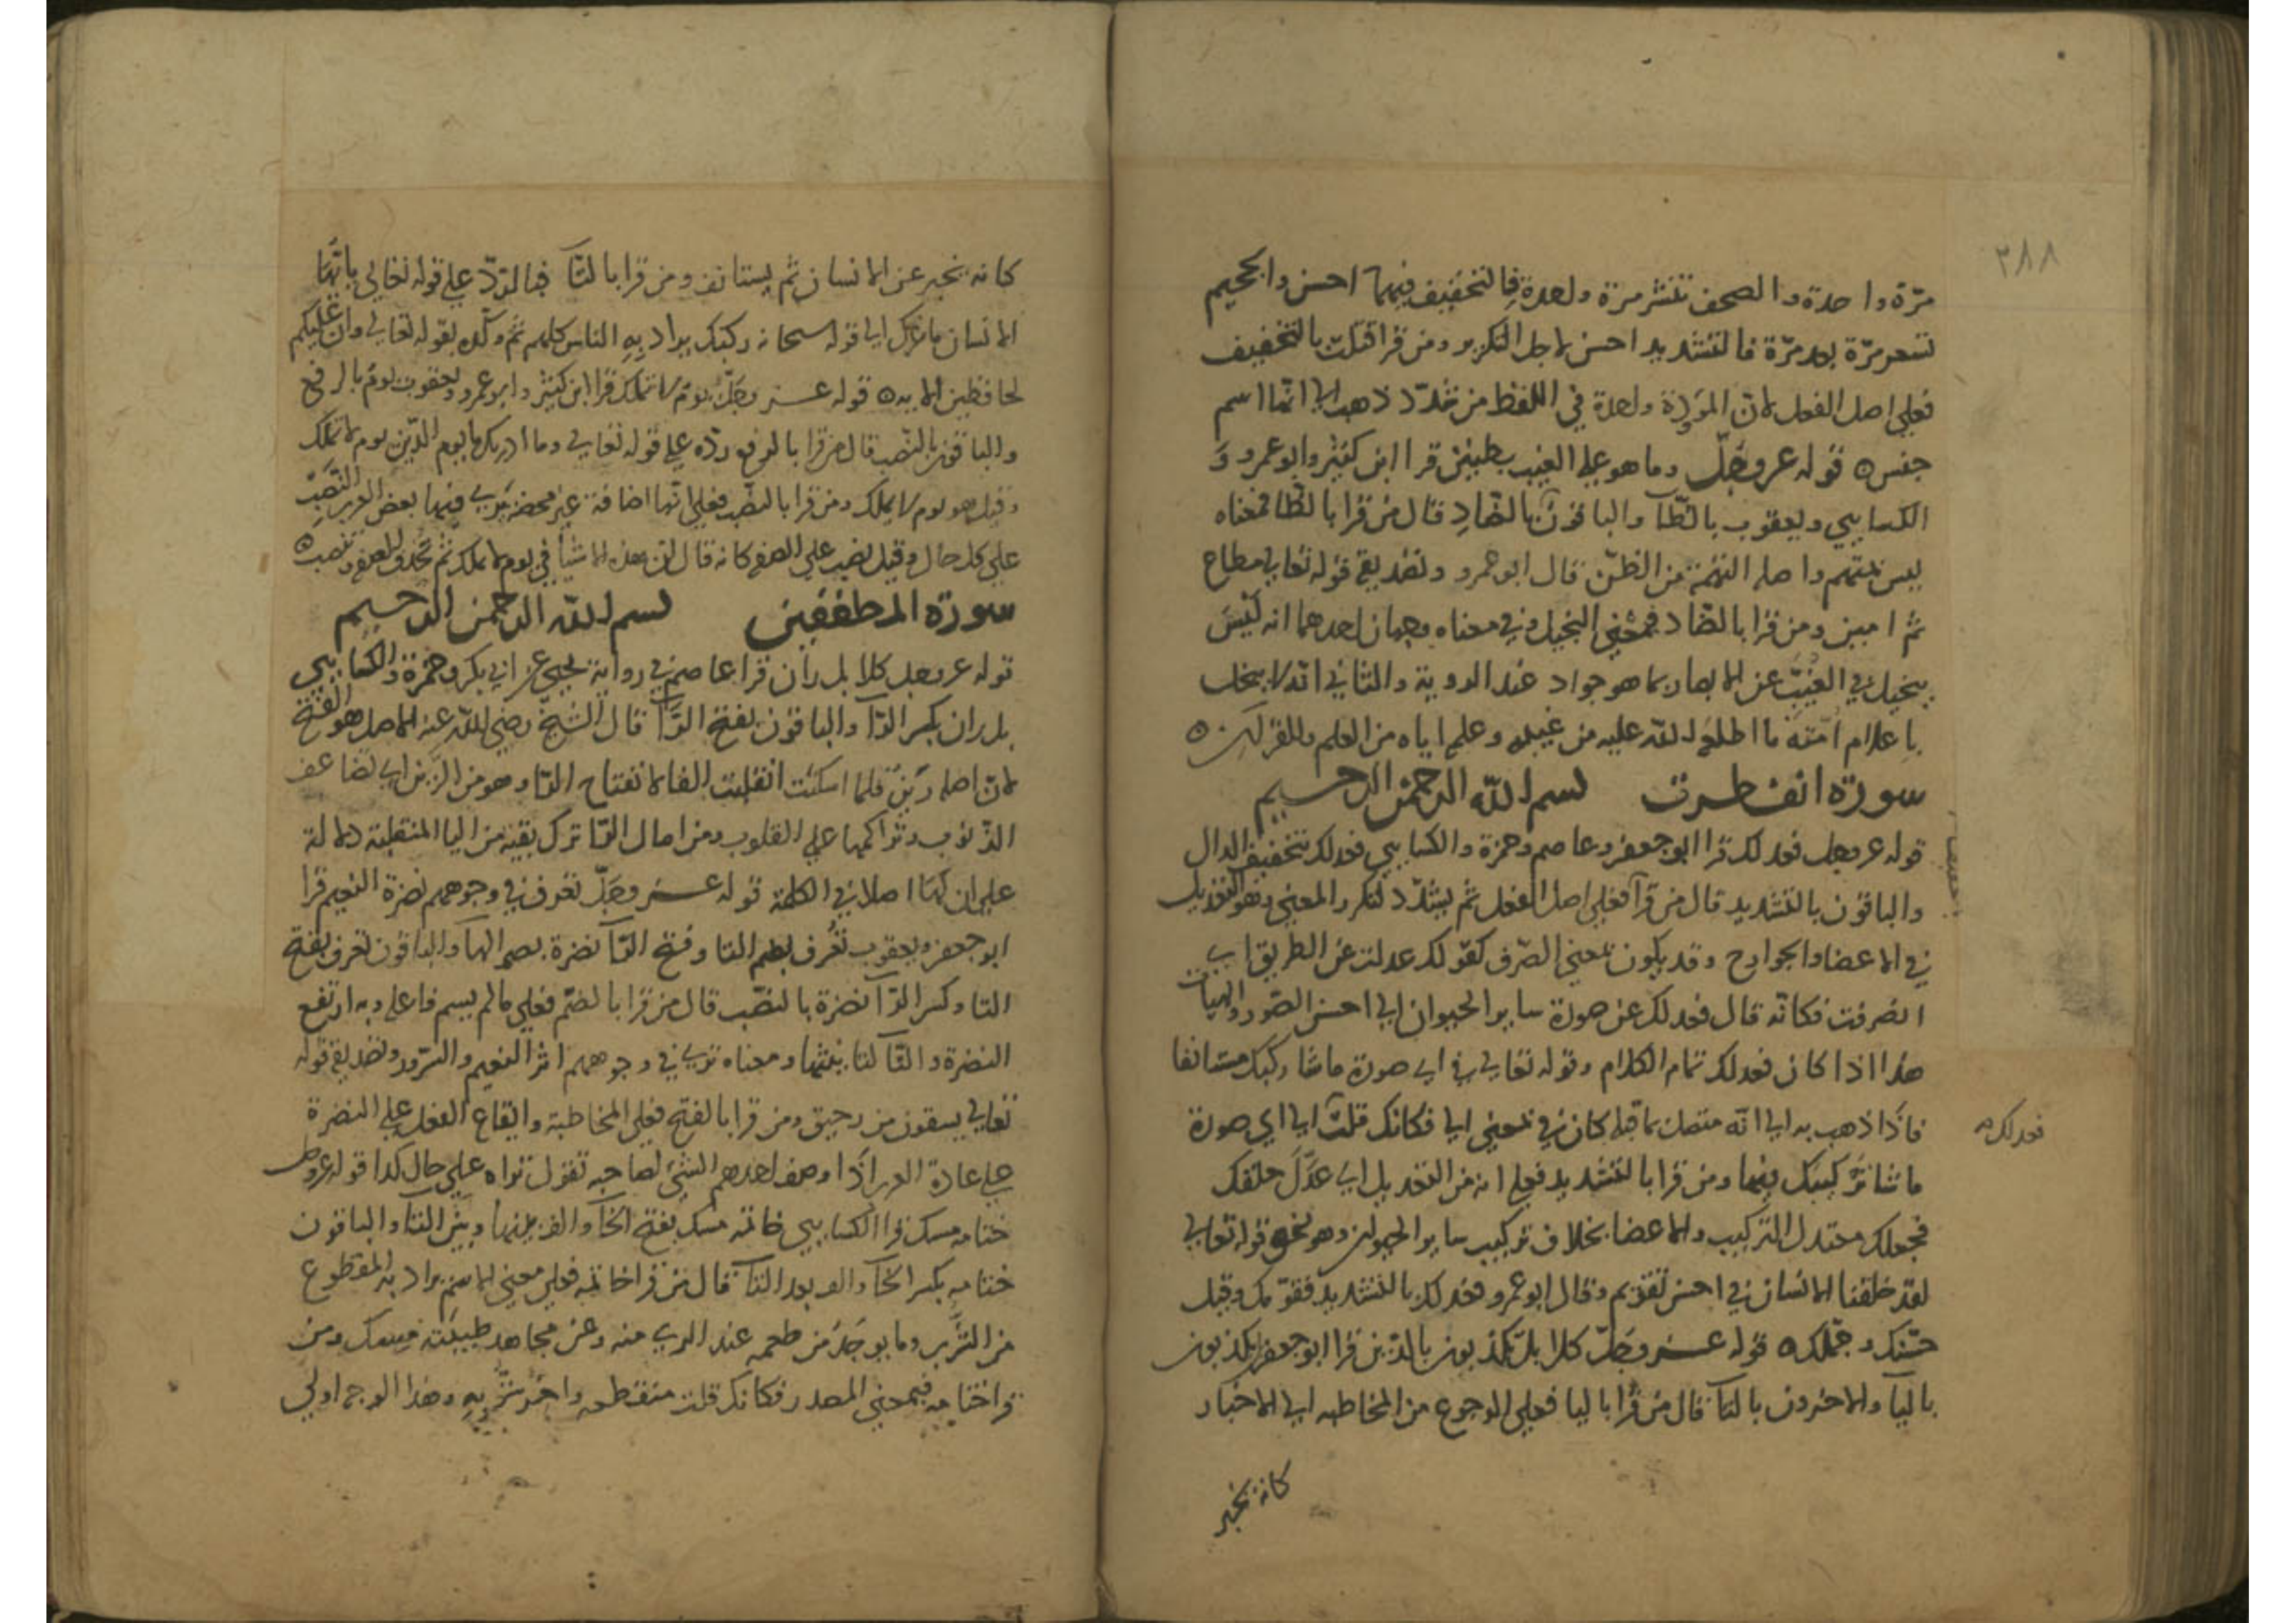 ٢٨٨
مرّة واحدة والصحف تنشر مرة واحدة فالتخفيف فيهما احسن والجحيم
تسعر مرّة بعد مرّة فالتشديد احسن لاجل التكرير ومن قرا قتلت بالتخفيف
فعلى اصل الفعل لان الموؤدة واحدة في اللفظ من شدّد ذهب الى انها اسم
جنس ٥ قوله عز وجلّ وما هو على الغيب بظنين قرا ابن كثير وابو عمرو و
الكسايي ويعقوب بالظّا والباقون بالضّادِ قال من قرا بالظّا فمعناه
ليس بمتهم واصله التهمة من الظنّ قال ابو عمرو وتصديقه قوله تعالى مطاع
ثم امين ومن قرا بالضّاد فبمعنى البخيل وفي معناه وجهان احدهما انه ليسَ
ببخيل في الغيب عن الابصار بما هو جواد عند الروية والثاني انه لا يبخل
باعلام امته ما اطلعه الله عليه من غيبه وعلمه اياه من العلم والقران ٥
سورة انفطرت بسم الله الرحمن الرحيم
قوله عز وجل فعدلك قرا ابو جعفر وعاصم وحمزة والكسايي فعدلك بتخفيف الدال
والباقون بالتشديد قال من قرا فعلى اصل الفعل ثم يشدّد لتكرر المعنى وهو التعديل
في الاعضا والجوارح وقد يكون بمعنى الصّرف كقولك عدلت عن الطريق اي
انصرفت فكانّه قال فعدلك عن صورة ساير الحيوان الى احسن الصّور والهيآت
هذا اذا كان فعدلك تمام الكلام وقوله تعالى في اي صورة ماشا ركبك مستانفا
فاذا ذهب به الى انّه متصل بما قبله كان في بمعنى الى فكانك قلت الى اي صورة
فعدلك
ما شا تركيبك فيها ومن قرا بالتشديد فعلى انه من التعديل اي عدّلَ خلقك
فجعلك معتدل التركيب والاعضا بخلاف تركيب ساير الحيوان وهو نحو قوله تعالى
لقد خلقنا الانسان في احسن تقويم وقال ابو عمرو فعدلك بالتشديد فقوّمك وقيل
حسّنك وجمّلك ٥ قوله عز وجلّ كلا بل تكذبون بالدّين قرا ابو جعفر يكذبون
باليآ والاخرون بالتآ قال من قرا باليا فعلى الرجوع من المخاطبه الى الاخبار
كانه يخبر
كانه يخبر عن الانسان ثم يستانف ومن قرا بالتآ فبالردّ على قوله تعالى ياتهّا
الانسان ما غرك الى قوله سبحانه ركبك يراد بِهِ الناس كلهم ثم وكّده بقوله تعالى وان عليكم
لحافظين الايه ٥ قوله عز وجلّ يومُ لا تملك قرا ابن كثير وابو عمرو ويعقوب يومُ بالرفع
والباقون بالنّصب قال من قرا بالرفع ردّه على قوله تعالى وما ادريك ما يوم الدّين يوم لا تملك
وقيل هو يوم لا يملك ومن قرا بالنصب فعلى انّها اضافة غير محضه يرى فيها بعض العرب النّصب
على كل حال وقيل نصب على الصفه كانه قال لتن هذه الاشيآ في يوم لا تملك ثم تحذف الصفه وتنصب ٥
سورة المطففين بسم الله الرحمن الرحيم
قوله عز وجل كلا بل رانَ قرا عاصم في رواية يحيى عن ابي بكر وحمزة والكسايي
بل ران بكسر الرّآ والباقون بفتح الرّآ قال الشيخ رضي الله عنه الاصل هو الفتح
لانّ اصله رَيَنَ فلما اسكنت انقلبت الفا لانفتاح الرّا وهو من الرّين اي تضاعف
الذّنوب وتراكمها على القلوب ومن امال الرّا ترك بقيّة من اليا المنقلبة دلالة
على ان لها اصلا في الكلمة قوله عز وجلّ تعرف في وجوههم نضرة النعيم قرا
ابو جعفر ويعقوب تعُرف بضم التا وفتح الرّآ نضرة بضم الهآ والباقون تعرف بفتح
التا وكسر الرّآ نضرة بالنصّب قال من قرا بالضّم فعلى مالم يسم فاعله وبه ارتفع
النضرة والتّآ لتانيثها ومعناه ترى في وجوههم اثر النعيم والسّرور وتصديقه قوله
تعالى يسقون من رحيق ومن قرا بالفتح فعلى المخاطبة وايقاع الفعل على النضرة
على عادة العرب اذا وصف احدهم الشئ لصاحبه تقول تراه على حال كذا قوله عز وجل
ختامه مسك قرا الكسايي خاتمه مسك بفتح الخآ والف بينها وبين التّا والباقون
ختامه بكسر الخآ والف بعد التآ قال من قرا خاتمه فعلى معنى الاسم يراد به المقطوع
من الشّرب وما يوجد من طعمه عند الري منه وعن مجاهد طيبته مسك ومن
قرا ختامه فبمعنى المصدر فكانك قلت منقطعه واخر شربِهِ وهذا الوجه اولى